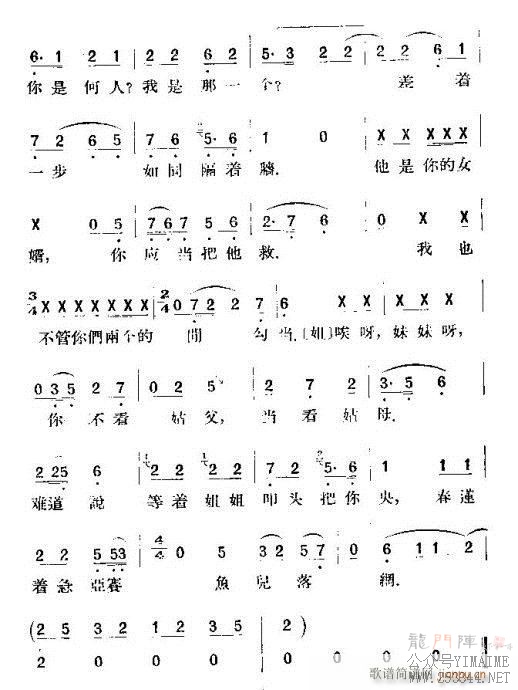 6· 1 2 1 2 6 2 5· 3 2 2 2 2 6 1
你是何人?我是那一个? 差着
7 2 6 5 7 6 7 6 5· 6 1 0 X X X X X
一步 如同隔着牆. 他是你的女
X 0 5 7 6 7 5 6 2· 7 6 0 X X
婿, 你应当把他救. 我也
3/4 X X X X X X X 2/4 0 7 2 2 7 6 X X X X X
不管你們兩个的 間 勾当.〔姐〕唉呀,妹妹呀,
0 3 5 2 7 2 7 6 5 2 7 2 3· 5 6
你 不看 姑父, 当看姑母.
2 2 5 6 2 2 2 2 7 2 5· 6 2 2 2
难道 說 等着姐姐叩头把你央,春蓮
2 2 5 5 3 4/4 0 5 3 2 3 5 7 0 6 1 1 2
着急亞賽 魚兒落 網.
( 2 5 3 2 1 2 3 5 2 0 )
2 0 0 0 0 0 0 0
龍門陣
公众号YIMAIME
歌谱简谱网
www.253844.com